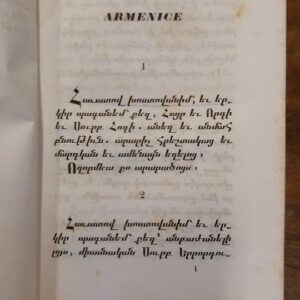 ARMENICE
1
Հաւատով խոստովանիմ, եւ եր-
կիր պագանեմ քեզ, Հայր եւ Որդի
եւ Սուրբ Հոգի. անեղ եւ անմահ
բնութիւն. արարիչ Հրեշտակաց եւ
մարդկան եւ ամենայն եղելոց:
Ողորմեա քո արարածոցս:
2
Հաւատով խոստովանիմ եւ եր-
կիր պագանեմ քեզ՝ անբաժանելի
լոյս, միասնական Սուրբ Երրորդու-
1